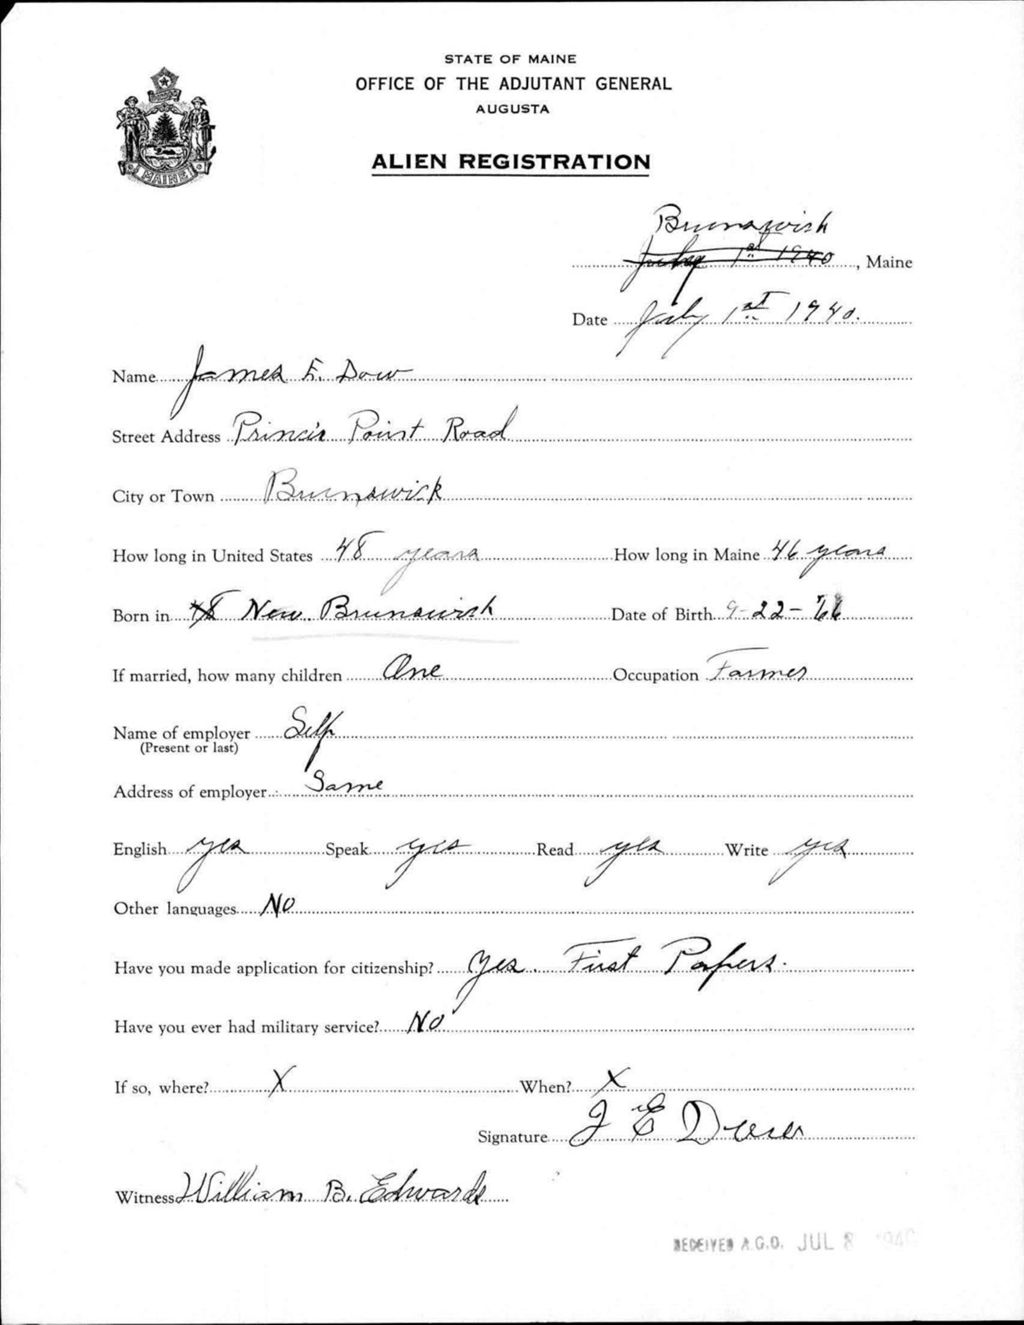 STATE OF MAINE
OFFICE OF THE ADJUTANT GENERAL
AUGUSTA
MAINE
ALIEN REGISTRATION
Brunswick
July 1st 1940, Maine
Date July 1st 1940.
Name James E. Dow
Street Address Princis Point Road
City or Town Brunswick
How long in United States 48 years How long in Maine 46 years
Born in New Brunswick Date of Birth 9-22-66
If married, how many children One Occupation Farmer
Name of employer Self
(Present or last)
Address of employer Same
English yes Speak yes Read yes Write yes
Other languages No
Have you made application for citizenship? Yes. First Papers.
Have you ever had military service? No
If so, where? X When? X
Signature J E Dow
Witness William B. Edwards
RECEIVED A.G.O. JUL 8 1940